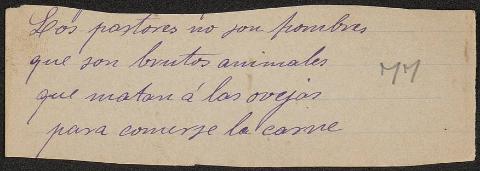 Los pastores no son hombres
que son brutos animales
que matan á las ovejas
para comerse la carne